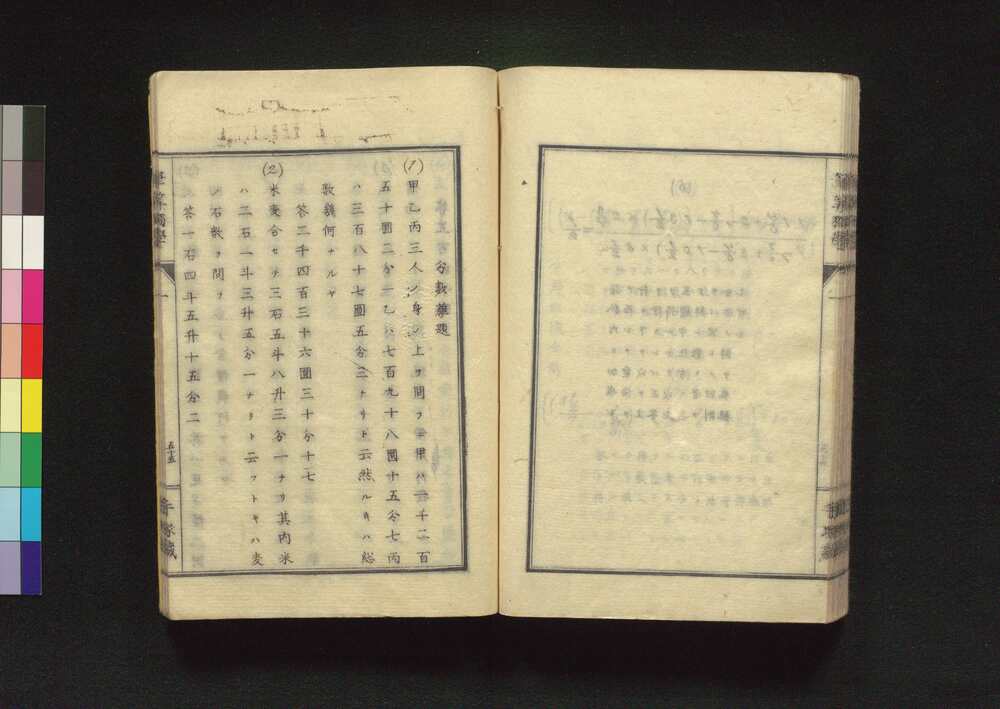 分數雜題
(1) 甲乙丙三人ノ身ノ上ヲ問フニ甲ハ一千二百
五十圓二分一乙ハ七百九十八圓十五分七丙
ハ三百八十七圓五分三ナリト云然ルキハ総
數額何ナルヤ
答二千四百三十六圓三十分十七
(2) 米麦合セテ三石五斗八升三分一ナリ其内米
ハ二石一斗三升五分一ナリト云フトキハ麦
ノ石數ヲ問フ
答一石四斗五升十五分二
筆算獨學 一 五十五